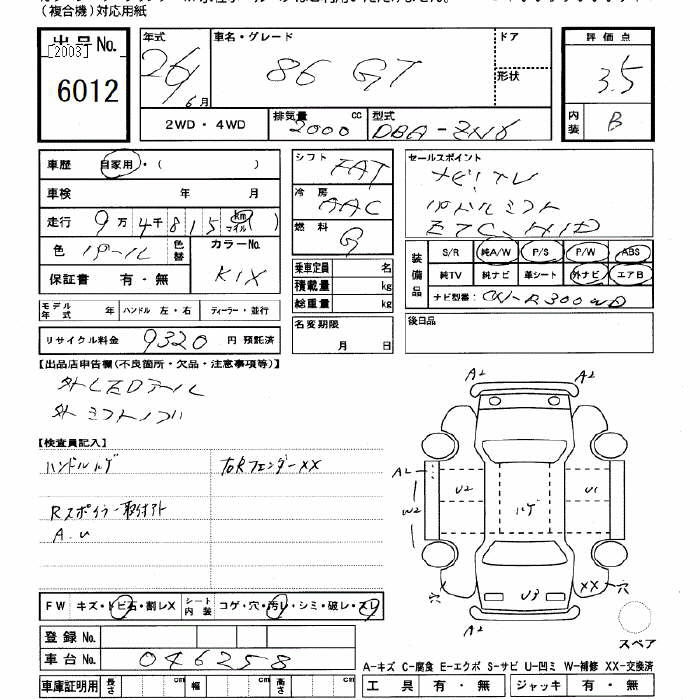 (複合機)対応用紙
出品No.
[2003]
6012
年式
26/6月
車名・グレード
86 GT
ドア
形状
評価点
3.5
内装
B
2WD・4WD
排気量 2000 cc
型式 DBA-ZN6
車歴 自家用・( )
車検 年 月
走行 9万4千815 km マイル ( )
色 パール 色替
カラーNo. K1X
保証書 有・無
シフト FAT
冷房 AAC
燃料 G
乗車定員 名
積載量 kg
総重量 kg
セールスポイント
ナビ!TV
パドルシフト
ETC、HID
装備品
S/R 純A/W P/S P/W ABS
純TV 純ナビ 革シート 外ナビ エアB
ナビ型番: CN-R300WD
モデル年式 年 ハンドル 左・右 ディーラー・並行
名変期限 月 日
後日品
リサイクル料金 9320 円 預託済
【出品店申告欄(不良箇所・欠品・注意事項等)】
外LEDテール
外シフトノブ
【検査員記入】
ハンドルハゲ
右Rフェンダーxx
Rスポイラー取付アト
A.U
A2 A2
A2
W2
U2
ハゲ
U1
U3
穴
XX 穴
A2
スペア
FW キズ・トビ石・割レX シート内装 コゲ・穴・汚レ・シミ・破レ・スレ
登録No.
車台No. 046258
車庫証明用 長さ cm 幅 cm 高さ cm
A-キズ C-腐食 E-エクボ S-サビ U-凹ミ W-補修 XX-交換済
工具 有・無 ジャッキ 有・無